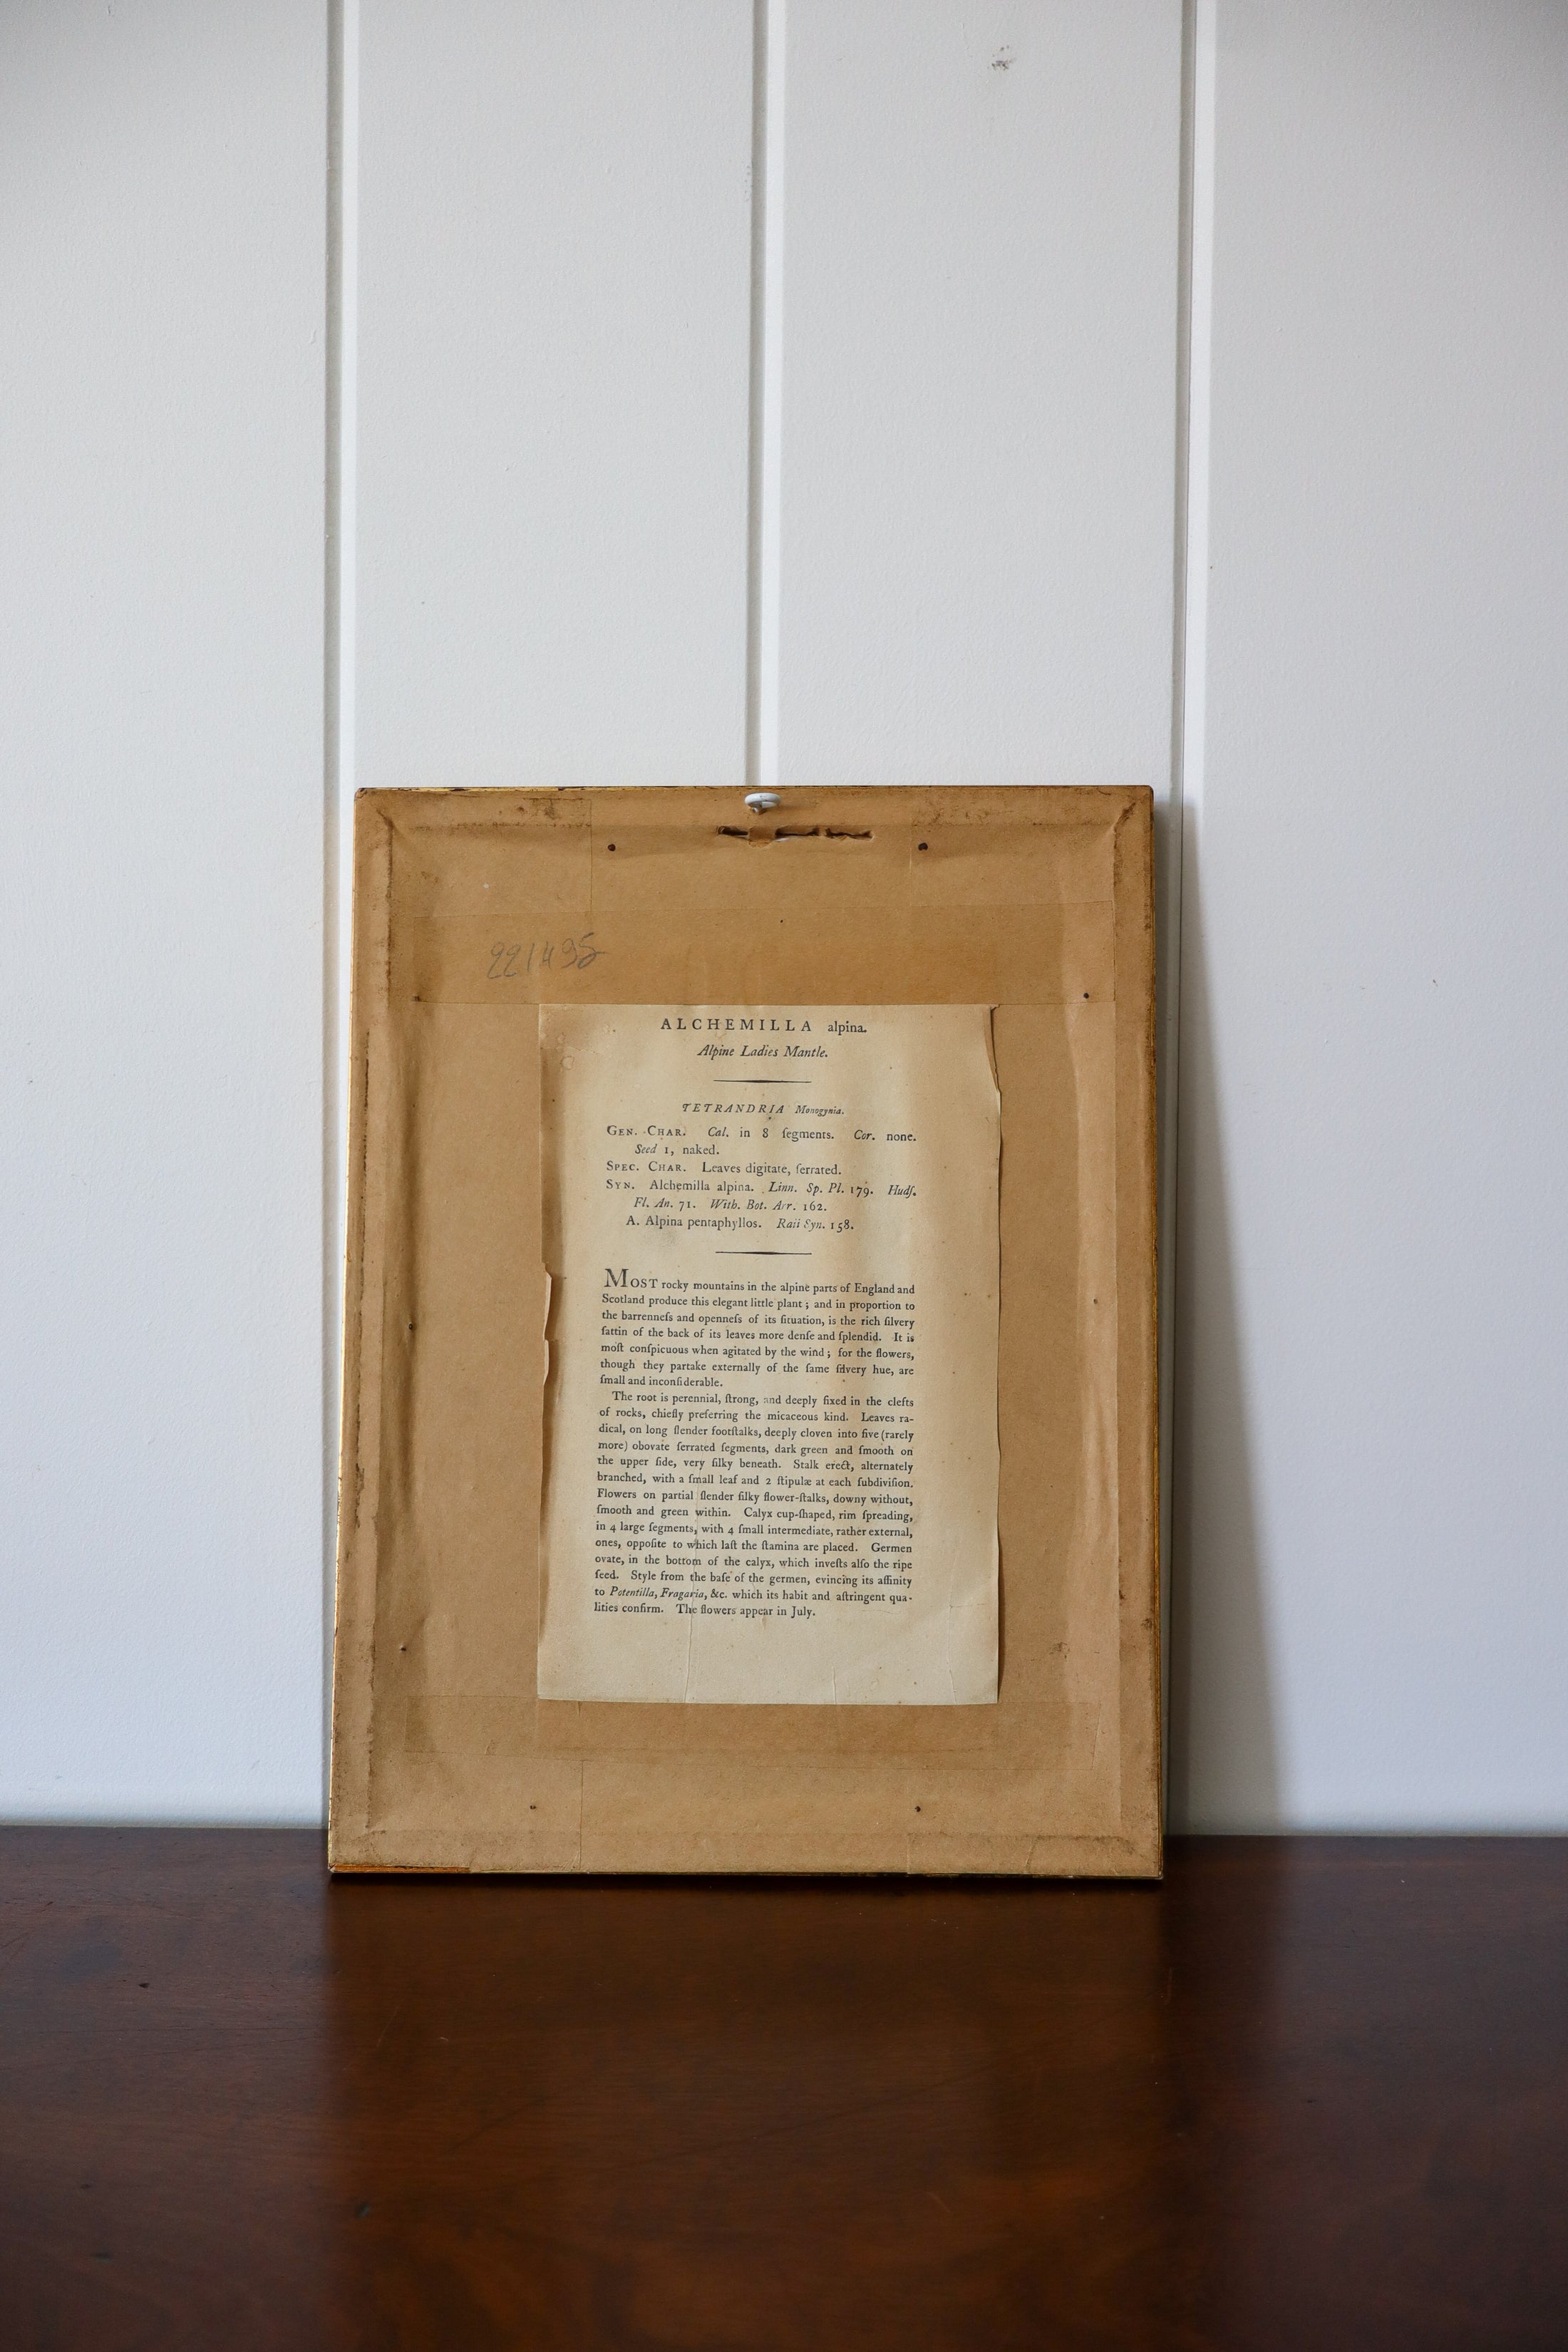 ALCHEMILLA alpina.
Alpine Ladies Mantle.
TETRANDRIA Monogynia.
GEN. CHAR. Cal. in 8 ſegments. Cor. none.
Seed 1, naked.
SPEC. CHAR. Leaves digitate, ſerrated.
SYN. Alchemilla alpina. Linn. Sp. Pl. 179. Hudſ.
Fl. An. 71. With. Bot. Arr. 162.
A. Alpina pentaphyllos. Raii Syn. 158.
MOST rocky mountains in the alpine parts of England and
Scotland produce this elegant little plant; and in proportion to
the barrenneſs and openneſs of its ſituation, is the rich ſilvery
ſattin of the back of its leaves more denſe and ſplendid. It is
moſt conſpicuous when agitated by the wind; for the flowers,
though they partake externally of the ſame ſilvery hue, are
ſmall and inconſiderable.
The root is perennial, ſtrong, and deeply fixed in the clefts
of rocks, chiefly preferring the micaceous kind. Leaves ra-
dical, on long ſlender footſtalks, deeply cloven into five (rarely
more) obovate ſerrated ſegments, dark green and ſmooth on
the upper ſide, very ſilky beneath. Stalk erect, alternately
branched, with a ſmall leaf and 2 ſtipulæ at each ſubdiviſion.
Flowers on partial ſlender ſilky flower-ſtalks, downy without,
ſmooth and green within. Calyx cup-ſhaped, rim ſpreading,
in 4 large ſegments, with 4 ſmall intermediate, rather external,
ones, oppoſite to which laſt the ſtamina are placed. Germen
ovate, in the bottom of the calyx, which inveſts alſo the ripe
ſeed. Style from the baſe of the germen, evincing its affinity
to Potentilla, Fragaria, &c. which its habit and aſtringent qua-
lities confirm. The flowers appear in July.